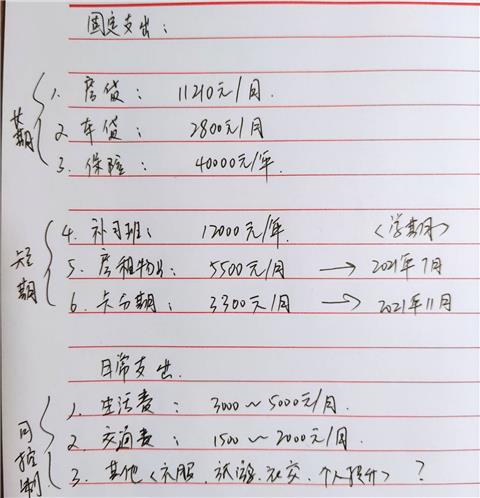 固定支出：
长期
1. 房贷： 11210元/月.
2. 车贷： 2800元/月
3. 保险： 40000元/年.
短期
4. 补习班： 12000元/年. <学期>
5. 房租物业： 5500元/月 → 2021年7月
6. 卡分期： 3300元/月 → 2021年11月
日常支出.
可控制
1. 生活费： 3000～5000元/月.
2. 交通费： 1500～2000元/月.
3. 其他<衣服.旅游.社交.个人提升> ?